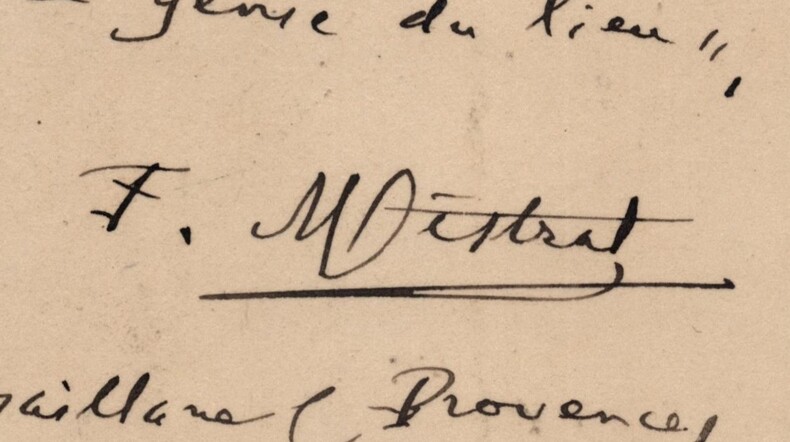 génie du lieu",
F. Mistral
Maillane (Provence)